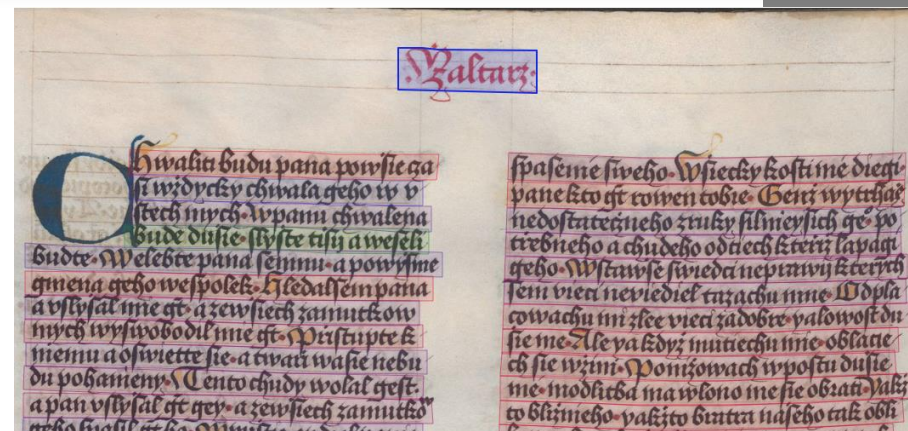 Zaltarz
Chwaliti budu pana powssie za
si wzdycky chwala geho w v
stech mych · W panu chwalena
bude dusie · slyste tissij a weseli
budte · Welebte pana semnu · a powysme
gmena geho wespolek · Hledalsem pana
a vslyssal mie gt · a zewsiech zamutkow
mych wyswobodil mie gt · Pristupte k
niemu a oswiette sie · a twarí wasie nebu
du pohanieny · Tento chudy wolal gest ·
a pan vslyssal gt gey · a zewsiech zamutko
spasenie sweho · Wsiecky kosti mé diegi ·
pane kto gt rowen tobie · Genz wytrhas
nedostatecneho z ruky silniegsich ge · po
trebneho a chudeho od tiech kteriz lapagi
geho · Wstawse swiedci neprawij kterych
sem vieci neviediel tazachu mne · Odpla
cowachu mi zlee vieci za dobre · yalowost du
sie me · Ale ya kdyz mutiechu mie · oblacie
ch sie w zini · Ponizowach w postu dusie
me · modlitba ma w lono me sie obrati · Yakz
to bliznieho · yakzto bratra naseho tak obli